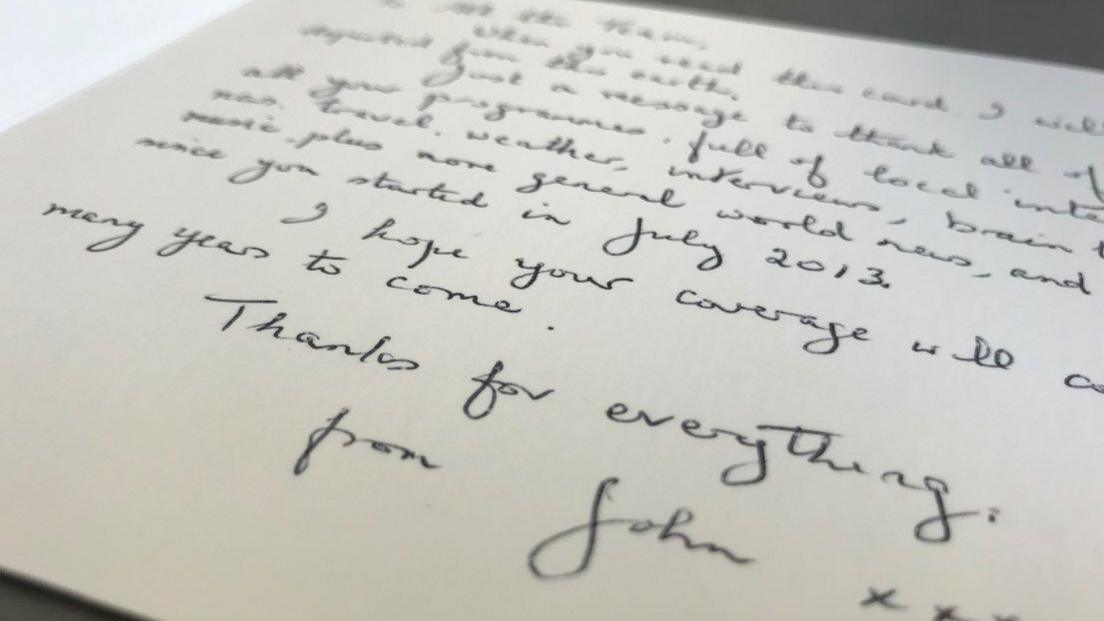 To all the team,
When you read this card I will
departed from this earth.
Just a message to thank all of
all your programmes. full of local inte
news. travel. weather, interviews, brain t
music, plus more general world news, and
since you started in July 2013.
I hope your coverage will co
many years to come.
Thanks for everything.
from
John
x x x